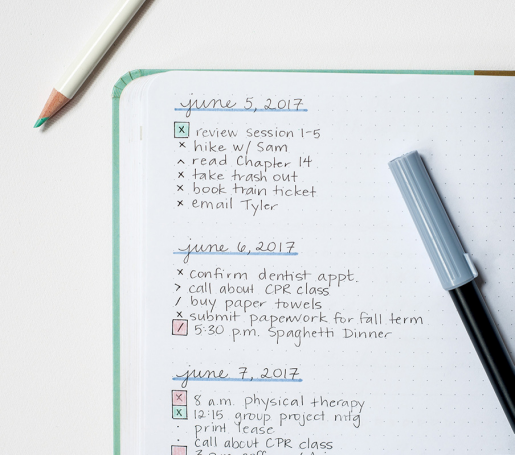 june 5, 2017
x review session 1-5
x hike w/ Sam
^ read Chapter 14
x take trash out
x book train ticket
x email Tyler
june 6, 2017
x confirm dentist appt.
> call about CPR class
/ buy paper towels
x submit paperwork for fall term
/ 5:30 p.m. Spaghetti Dinner
june 7, 2017
x 8 a.m. physical therapy
x 12:15 group project mtg
· print lease
· call about CPR class